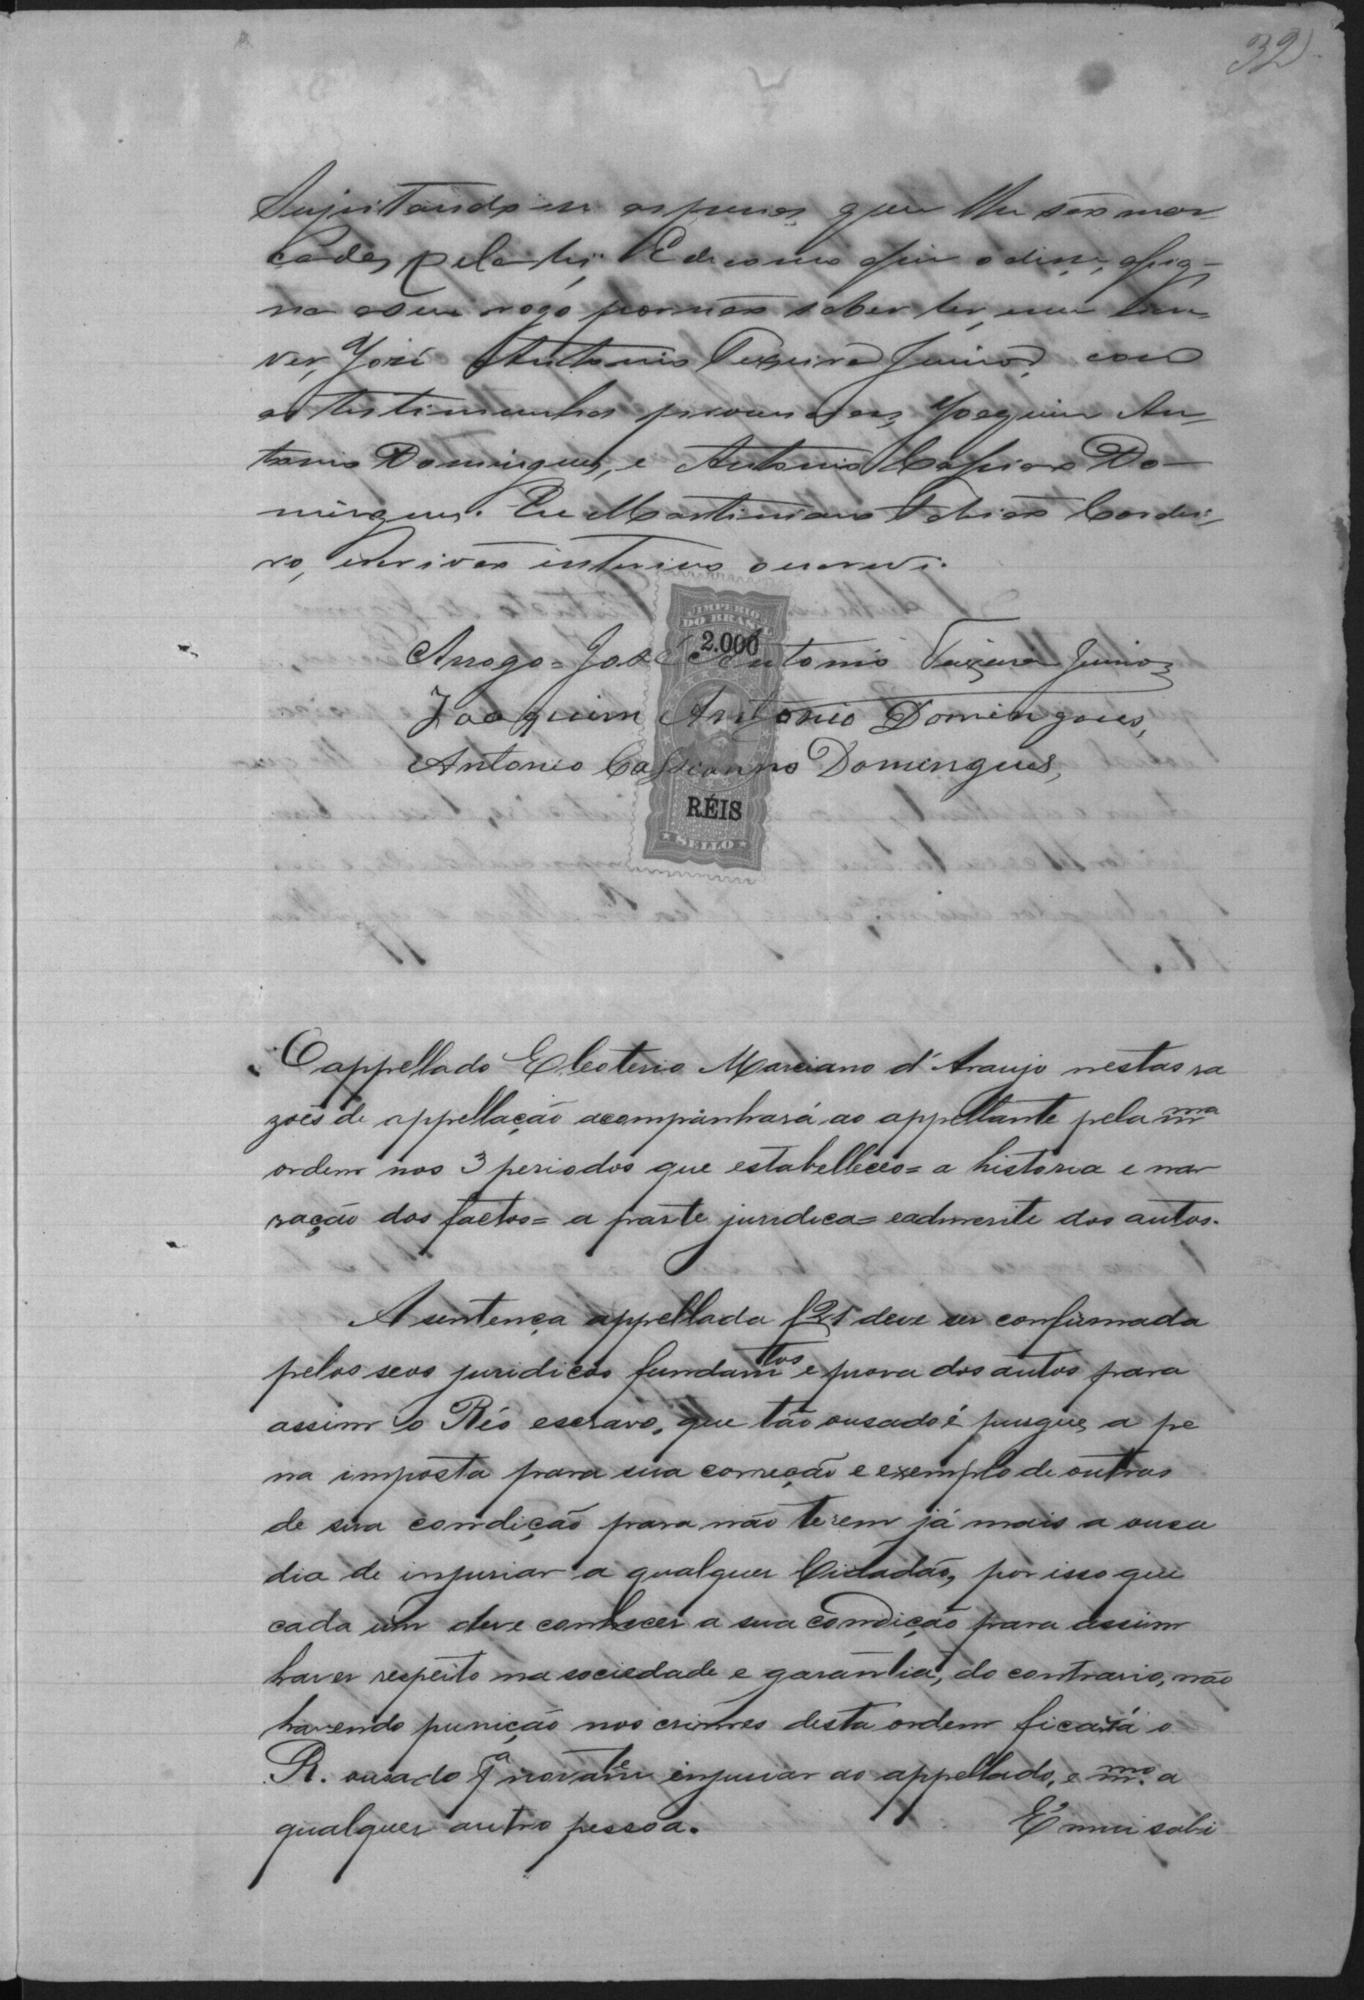 32
Sujeitando-se as penas que lhe são mar
cadas pela lei. E de como assim o disse, assig-
na a seu rogo por não saber ler, nem escre-
ver, José Antonio Teixeira Junior, com
as testimunhas presenciaes, Joaquim An-
tonio Domingues, e Antonio Cassiano Do-
mingues. Eu Martiniano Tobias Cordei-
ro, escrivão interino o escrevi.
IMPERIO
DO BRASIL
2.000
Arrogo = José Antonio Teixeira Junior
Joaquim Antonio Domingues,
Antonio Cassianno Domingues,
RÉIS
SELLO
O appellado Eleoterio Marciano d'Araujo nestas ra
zoẽs de appellação acompanhará ao appellante pela mma
ordem nos 3 periodos que estabelleceo = a historia e nar
ração dos factos = a parte juridica = e adincrite dos autos.
A sentença appellada f 21 deve ser confirmada
pelos seos juridicos fundamtos e prova dos autos para
assim o Réo escravo, que tão ousado é purgue a pe
na imposta para sua correção e exemplo de outros
de sua condição para não terem já mais a ousa
dia de injuriar a qualquer Cidadão, por isso que
cada um deve conhecer a sua condição para assim
haver respeito na sociedade e garantia, do contrario, não
havendo punição nos crimes desta ordem ficará o
R. ousado pa novamte injuriar ao appellado, e mmo a
qualquer outro pessoa. É mui sabi